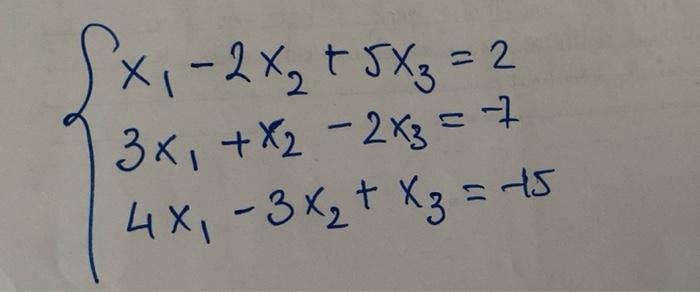 x₁ - 2x₂ + 5x₃ = 2
3x₁ + x₂ - 2x₃ = -7
4x₁ - 3x₂ + x₃ = -15